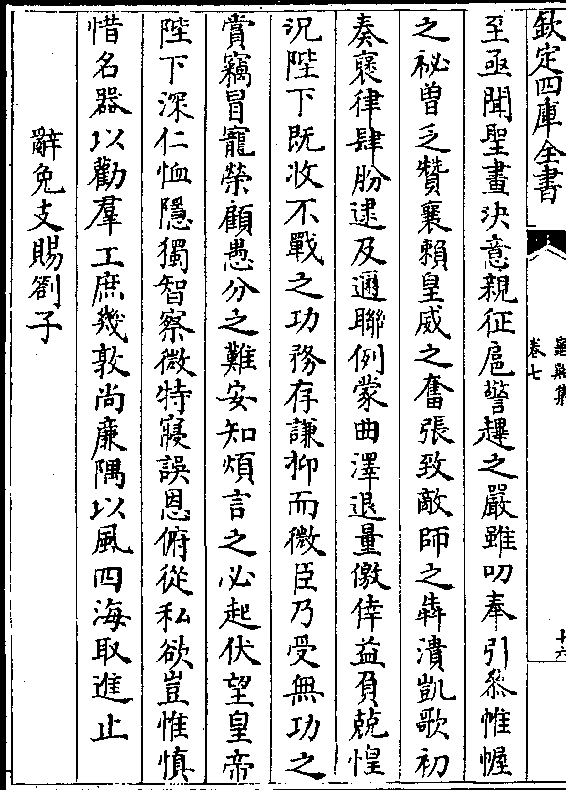 欽定四庫全書
卷七
十六
至亟聞聖畫決意親征扈警蹕之嚴雖叨奉引叅帷幄
之祕曽乏贊襄頼皇威之奮張致敵師之犇潰凱歌初
奏褒律肆朌逮及邇聯例蒙曲澤退量儌倖益負兢惶
况陛下既收不戰之功務存謙抑而微臣乃受無功之
賞竊冒寵榮顧愚分之難安知煩言之必起伏望皇帝
陛下深仁恤隱獨智察微特寢誤恩俯從私欲豈惟慎
惜名器以勸羣工庶幾敦尚廉隅以風四海取進止
辭免支賜劄子